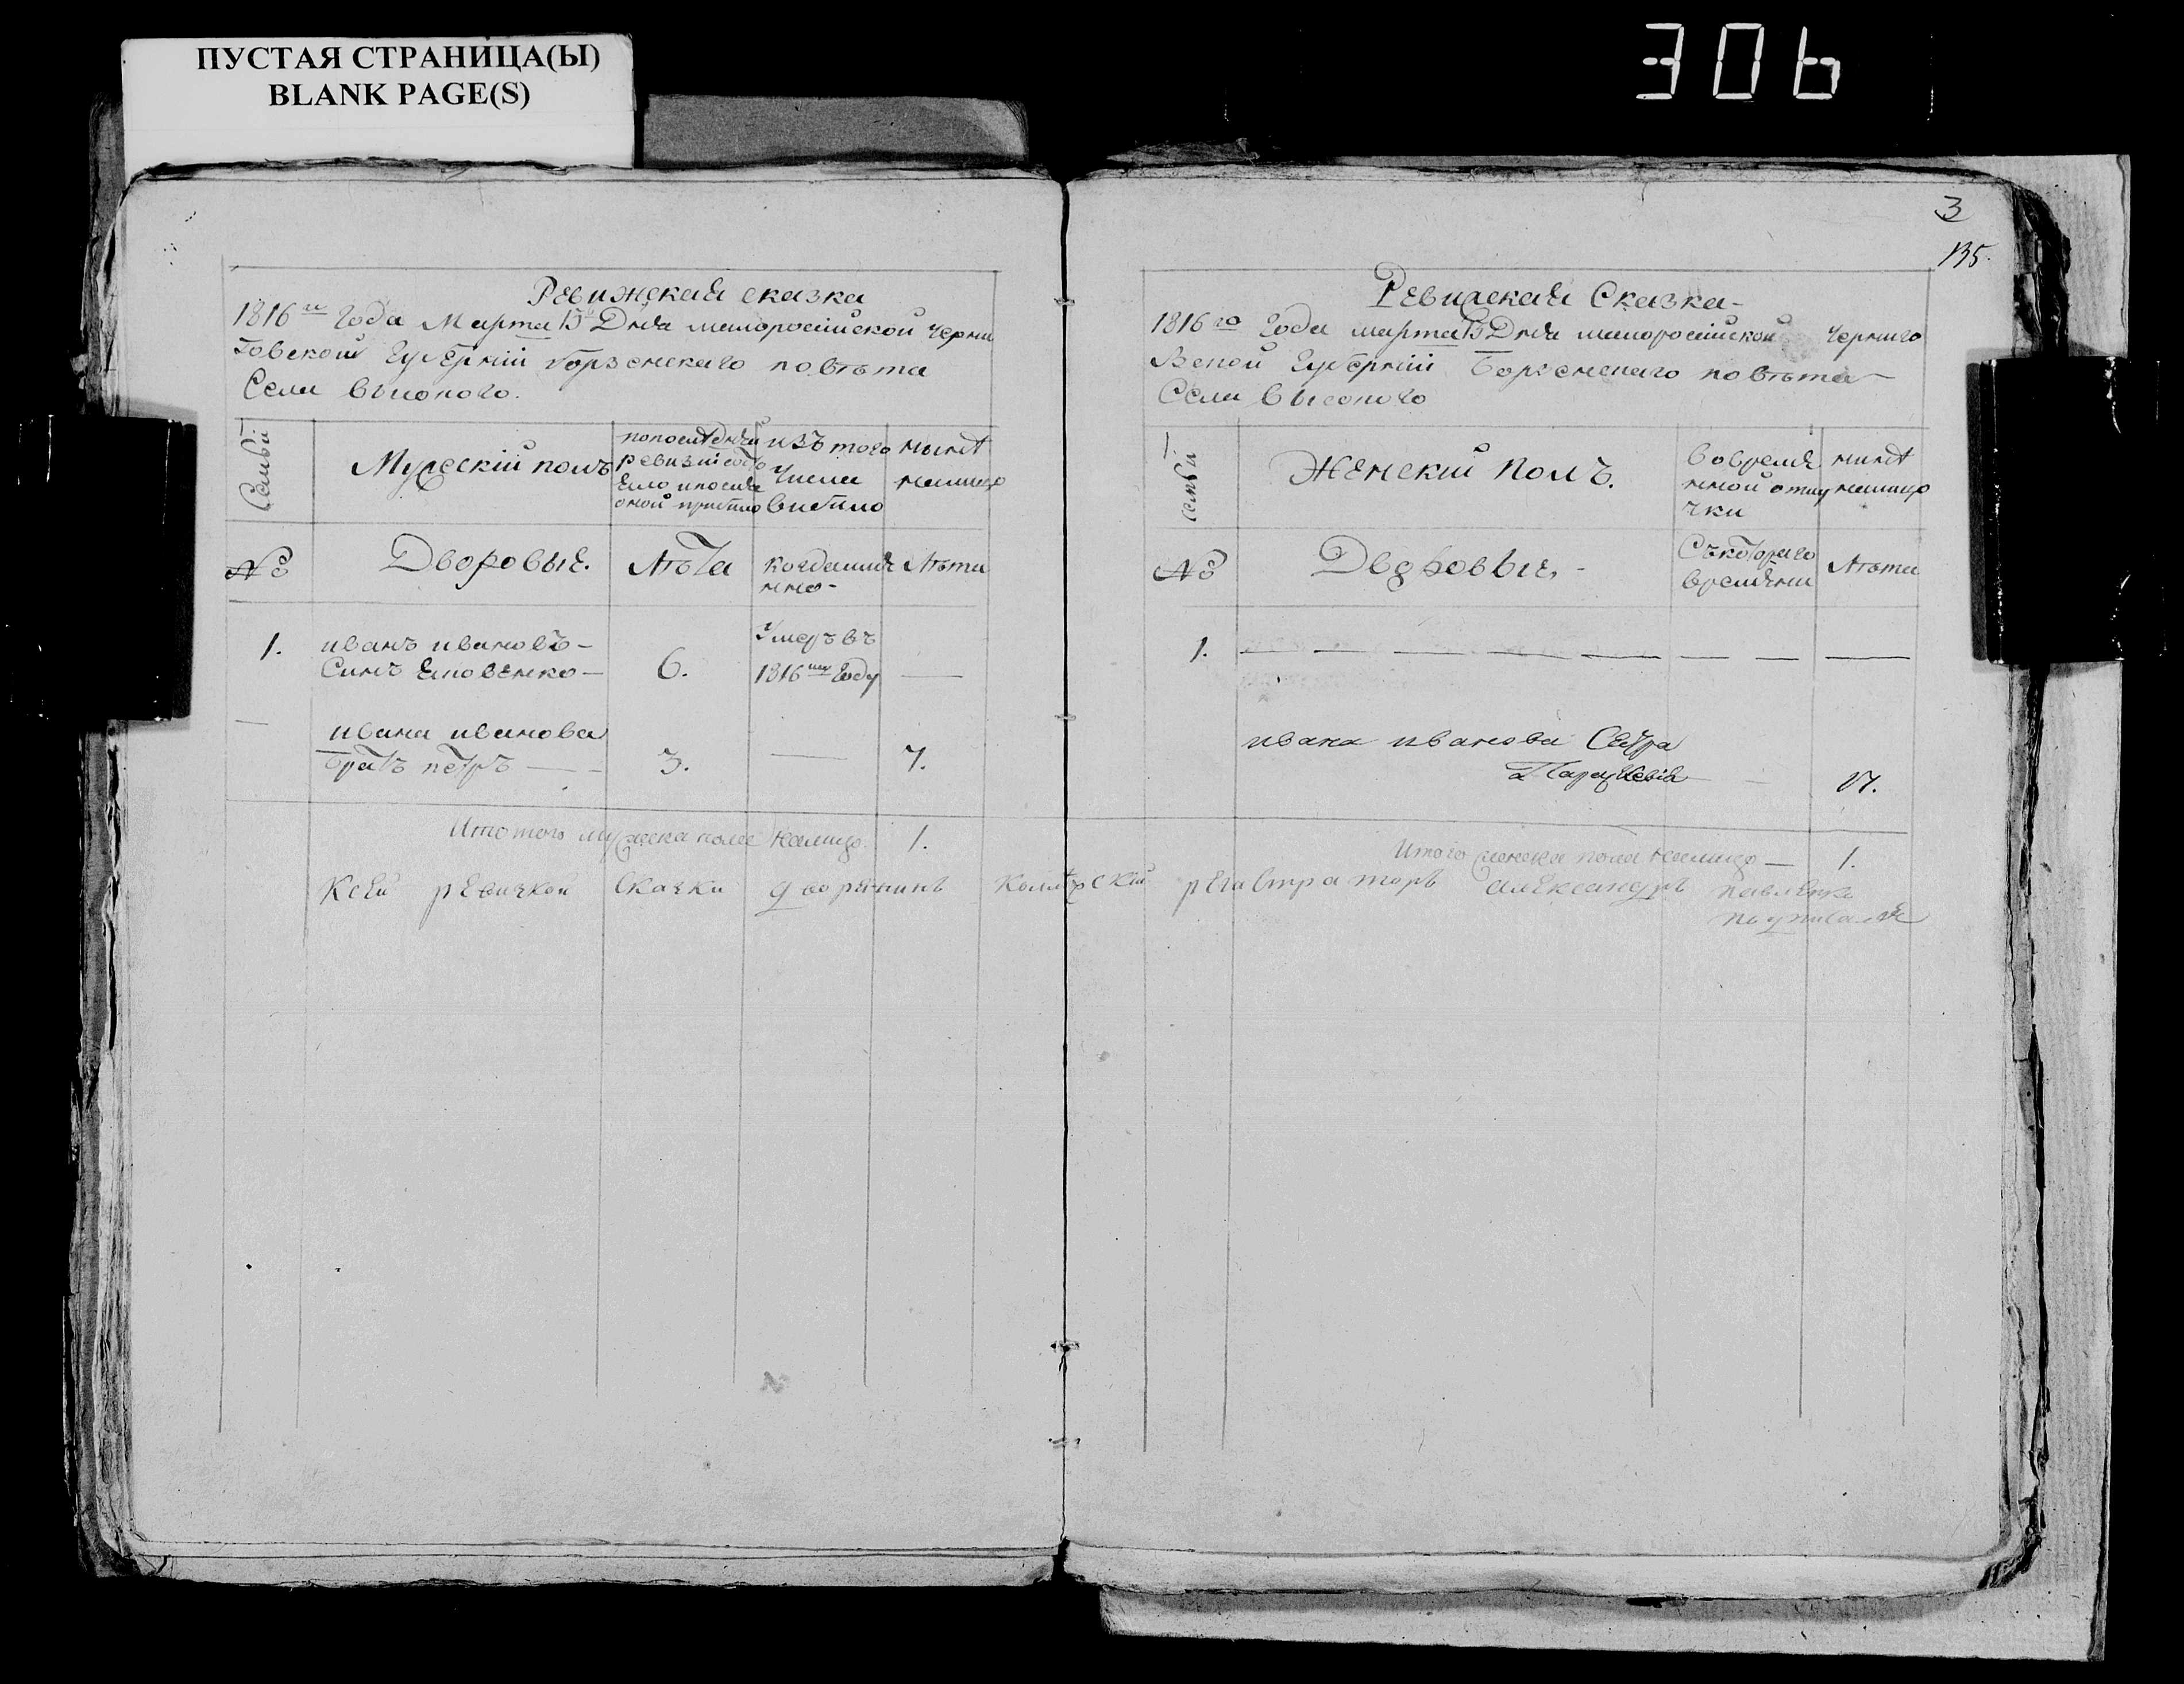 ПУСТАЯ СТРАНИЦА(Ы)
BLANK PAGE(S)
306
Ревижская сказка
1816го Года Марта 15 Дня малоросийской черни
говской губернии борзенского повѣта
Села высокого.
Семьи
Мужескій полъ
попоследней
ревизіи состо
яло ипосля
оной прибило
изъ того
числа
выбило
нынѣ
налицо
№
Дворовые.
лѣта
когдаиме
нно-
лѣта
1.
иванъ ивановъ-
Синъ Яковенко-
6.
Умеръ въ
1816м году
—
—
ивана иванова
братъ петръ — -
3.
—
7.
Итого мужска пола налицо
1.
3
135.
Ревижская Сказка-
1816го Года марта 15 Дня малоросійской черниго
вской губерніи Борзенского повѣта
Села высокого
семьи
Женскій полъ.
вовремя
нной отлу
чки
нинѣ
налицо
№
Дворовые, -
Съкотораго
времяни
лѣта
1. — — — — — — — —
ивана иванова Сестра
Парускевія —
17.
Итого женска пола налицо —
1.
Ксей ревизкой скаски дворянинъ колѣжский регистраторъ александръ павленко
подписался